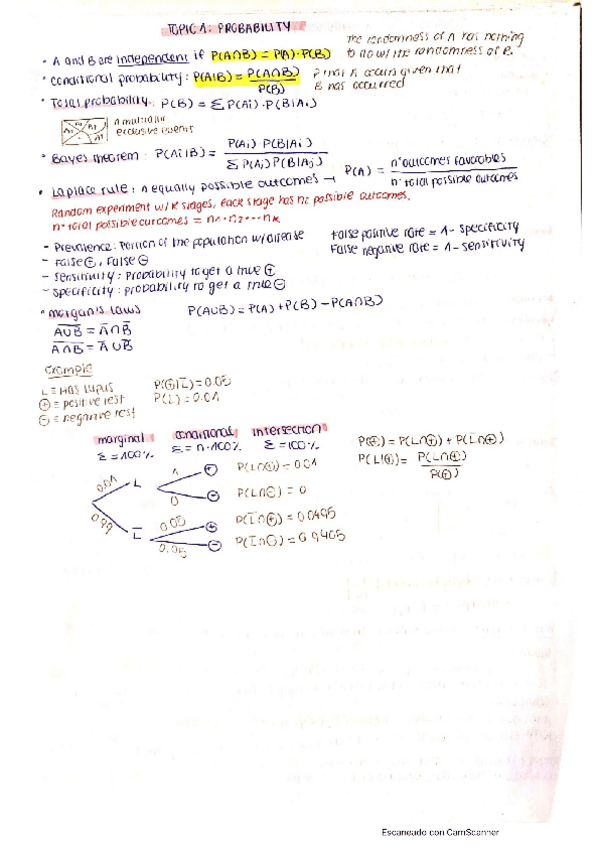 TOPIC 1: PROBABILITY
• A and B are independent if P(A∩B) = P(A)·P(B)
The randomness of A has nothing
to do w/ the randomness of B.
• Conditional probability: P(A|B) = P(A∩B) / P(B)
P that A occurs given that
B has occurred
• Total probability. P(B) = Σ P(Ai)·P(B|Ai)
n mutually
exclusive events
• Bayes theorem: P(Ai|B) = P(Ai) P(B|Ai) / Σ P(Aj) P(B|Aj)
• Laplace rule: n equally possible outcomes → P(A) = nº outcomes favorables / nº total possible outcomes
Random experiment w/ K stages, each stage has ni possible outcomes.
nº total possible outcomes = n1·n2···nk
- Prevalence: Portion of the population w/ disease
- False ⊕, False ⊖
- Sensitivity: Probability to get a true ⊕
- Specificity: probability to get a true ⊖
False positive rate = 1 - specificity
False negative rate = 1 - sensitivity
• Morgan's laws
P(A∪B) = P(A) + P(B) - P(A∩B)
A̅∪̅B̅ = A̅ ∩ B̅
A̅∩̅B̅ = A̅ ∪ B̅
Example
L ≡ Has lupus
⊕ = positive test
⊖ = negative test
P(⊕|L̅) = 0.05
P(L) = 0.01
marginal conditional intersection
Σ = 100% Σ = n·100% Σ = 100%
0.01 L 1 ⊕ P(L∩⊕) = 0.01
0 ⊖ P(L∩⊖) = 0
0.99 L̅ 0.05 ⊕ P(L̅∩⊕) = 0.0495
⊖ P(L̅∩⊖) = 0.9405
P(⊕) = P(L∩⊕) + P(L̅∩⊕)
P(L|⊕) = P(L∩⊕) / P(⊕)
Escaneado con CamScanner